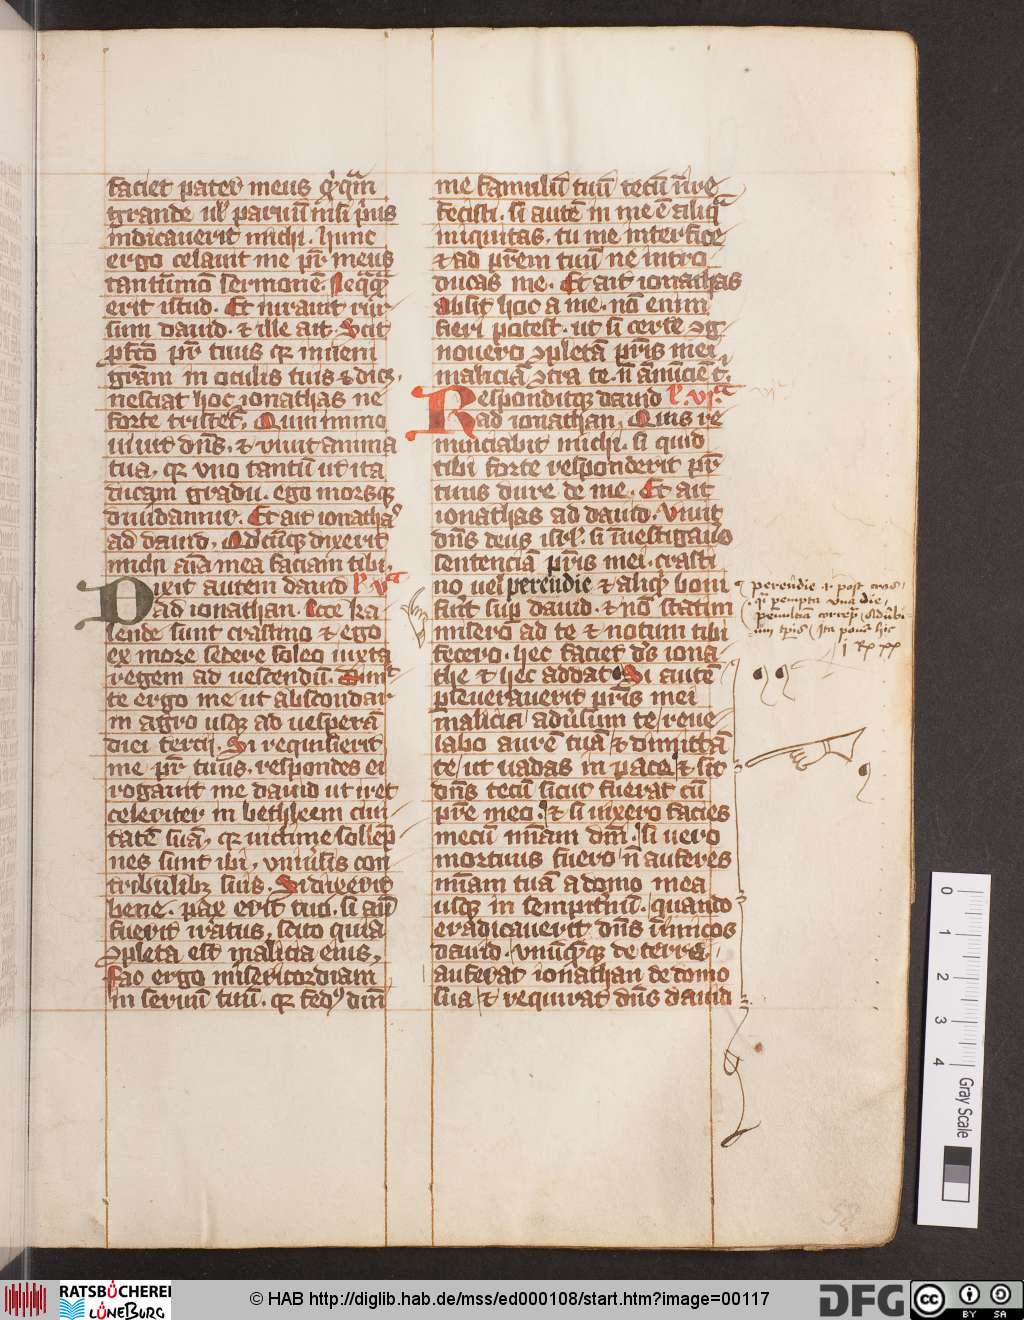 faciet pater meus q̇cq̄m
grande ul' paruū nisi p̄us
indicauerit michi. hunc
ergo celauit me pr̄ meus
tantūmō sermonē. Neq̄q̄
erit istud. Et iurauit rur
sum dauid. & ille ait. Scit
pfcō pr̄ tuus qr inueni
grām in oculis tuis & dic&.
nesciat hoc ionathas ne
forte tristet̄. Quinimmo
uiuit dn̄s. & viuit anima
tua. qr vno tantū ut ita
dicam gradu. ego morsq
diuidamur. Et ait ionatha
ad dauid. Qdcūq dixerit
michi aīa mea faciam tibi.
Dixit autem dauid l' va
ad ionathan. Ecce ka
lende sunt crastino & ego
ex more sedere soleo iuxta
regem ad uescendū. Dimit
te ergo me ut abscondar
in agro usq ad uesperā
diei tercij. Si requisierit
me pr̄ tuus. respondes ei
rogauit me dauid ut iret
celeriter in bethleem ciui
tatē suā, qr uictime sollēp
nes sunt ibi, vniūsis con
tribulibz suis. Si dixerit
bene. pax erit tuo. si aūt
fuerit iratus, scito quia
ꝯpleta est malicia eius,
Fac ergo misericordiam
in seruū tuū. qr fed' dn̄i
me famulū tuū tecū īire
fecisti. si autē in me ē aliq̄
iniquitas. tu me interfice
& ad p̄rem tuū ne intro
ducas me. Et ait ionathas
Absit hoc a me. nō enim
fieri potest. ut si certe ꝯg
nouero ꝯpletā p̄ris mei
maliciā ꝯtra te. ñ ānūciē t'.
Responditq dauid l' vja
ad ionathan. Quis re
nunciabit michi. si quid
tibi forte responderit pr̄
tuus dure de me. Et ait
ionathas ad dauid. Viuit
dn̄s deus isrl'. si īuestigauo
sentenciā p̄ris mei. crasti
no uel perēndie & aliq̇ boni
fūit sup dauid. & nō statim
misero ad te & notum tibi
fecero. hec faciet dn̄s iona
the & hec addat. Si autē
pseuerauerit p̄ris mei
malicia adūsum te/ reue
labo aurē tuā & dimittā
te/ ut uadas in pace & sit
dn̄s tecū sicut fuerat cū
p̄re meo. & si uixero facies
mecū mīam dn̄i. si uero
mortuus fuero ñ auferes
mīam tuā a domo mea
usq in sempitnū. quando
eradicauerit dn̄s inimicos
dauid. vnūqq de terra.
auferat ionathan de domo
sua & requirat dn̄s dauid
perēndie .i. post cras
58
0 1 2 3 4
Gray Scale
RATSBÜCHEREI
LÜNEBURG
© HAB http://diglib.hab.de/mss/ed000108/start.htm?image=00117
DFG
cc BY SA